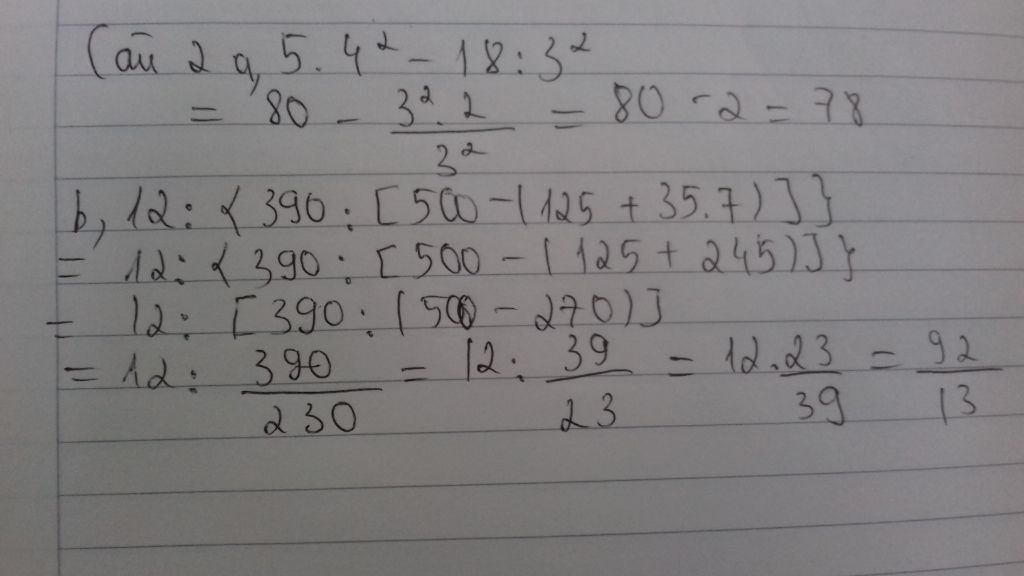 Câu 2 a, 5.4² - 18:3²
= 80 - 3².2/3² = 80 - 2 = 78
b, 12: {390 : [500 - (125 + 35.7)]}
= 12: {390 : [500 - (125 + 245)]}
= 12: [390 : (500 - 270)]
= 12: 390/230 = 12: 39/23 = 12.23/39 = 92/13